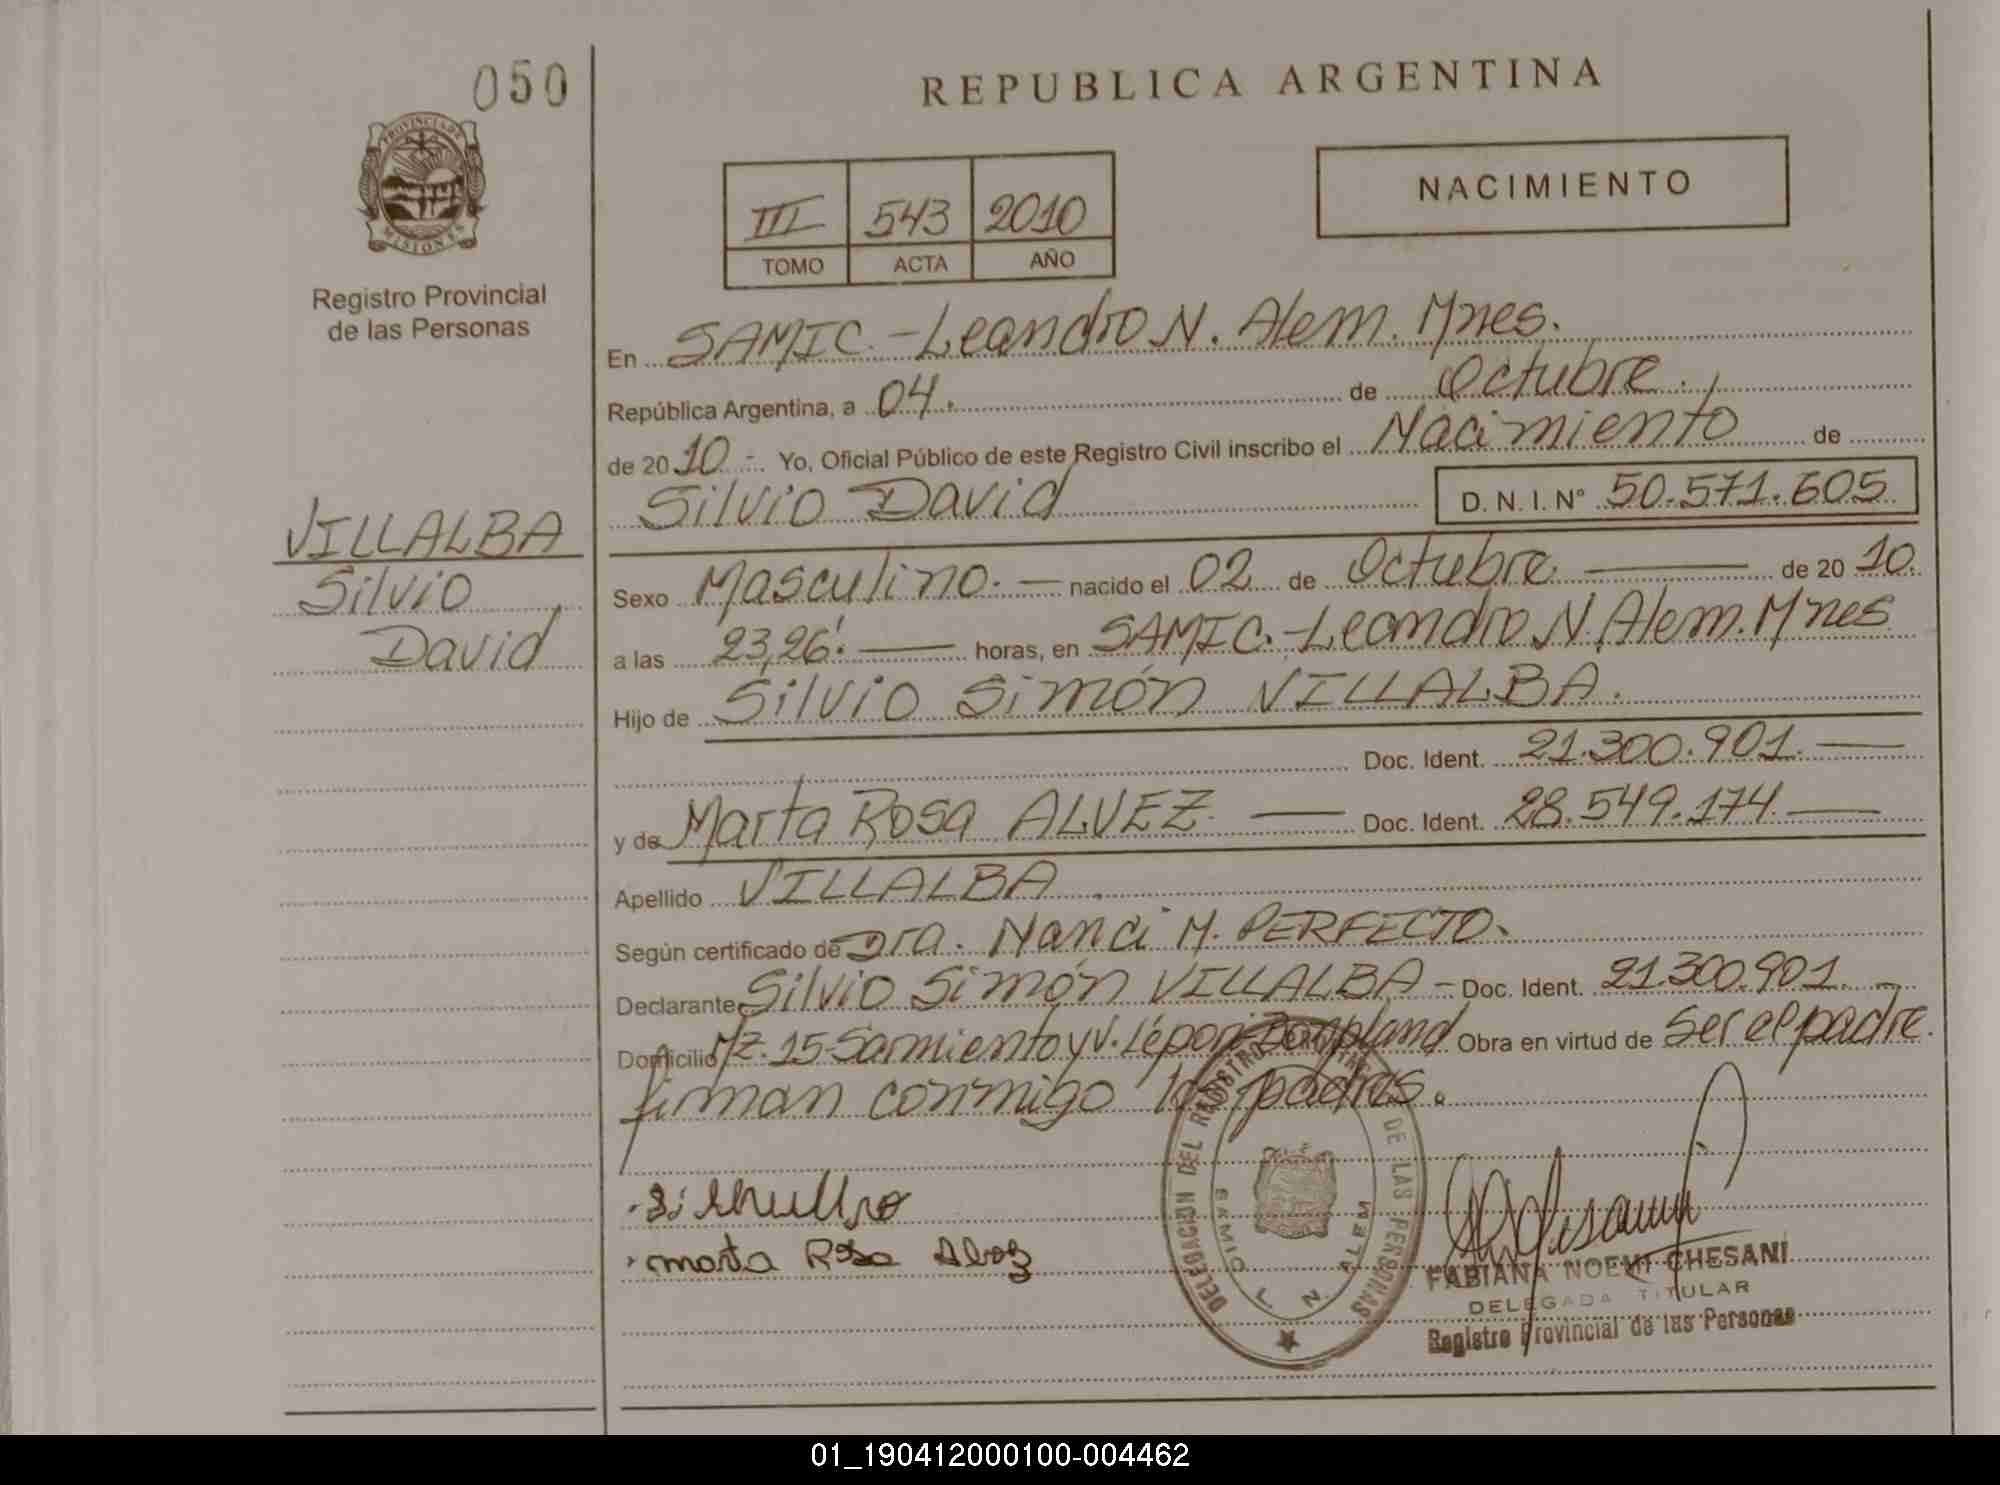 050
REPUBLICA ARGENTINA
PROVINCIA DE
MISIONES
Registro Provincial
de las Personas
NACIMIENTO
III 543 2010
TOMO ACTA AÑO
En SAMIC.-Leandro N. Alem. Mnes.
República Argentina, a 04. de Octubre.
de 20 10 - Yo, Oficial Público de este Registro Civil inscribo el Nacimiento de
Silvio David D. N. I. Nº 50.571.605
VILLALBA
Silvio
David
Sexo Masculino. — nacido el 02 de Octubre — de 20 10.
a las 23,26'. — horas, en SAMIC.-Leandro N. Alem. Mnes
Hijo de Silvio Simón VILLALBA.
Doc. Ident. 21.300.901. —
y de Marta Rosa ALVEZ. — Doc. Ident. 28.549.174. —
Apellido VILLALBA.
Según certificado de Dra. Nanci M. PERFECTO.
Declarante Silvio Simón VILLALBA - Doc. Ident. 21.300.901. -
Domicilio Mz. 15-Sarmiento y V. Lépori Bonpland Obra en virtud de Ser el padre.
firman conmigo los padres.
marta Rosa Alvez
DELEGACION DEL REGISTRO PROVINCIAL DE LAS PERSONAS
SAMIC L. N. ALEM
FABIANA NOEMI CHESANI
DELEGADA TITULAR
Registro Provincial de las Personas
01_190412000100-004462